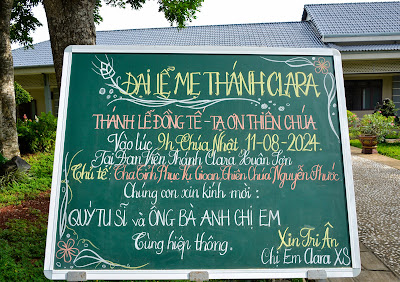 ĐẠI LỄ MẸ THÁNH CLARA
THÁNH LỄ ĐỒNG TẾ - TẠ ƠN THIÊN CHÚA
Vào lúc 9h Chúa Nhật 11-08-2024.
Tại Đan Viện Thánh Clara Xuân Sơn
Chủ tế: Cha Giám Phục Vụ Gioan Thiên Chúa Nguyễn Phước
Chúng con xin kính mời:
QUÝ TU SĨ và ÔNG BÀ ANH CHỊ EM
Cùng hiệp thông.
Xin Tri Ân
Chị Em Clara XS